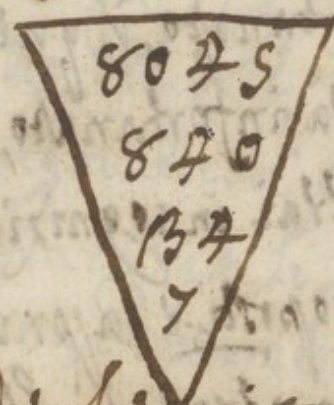 8045
840
34
7